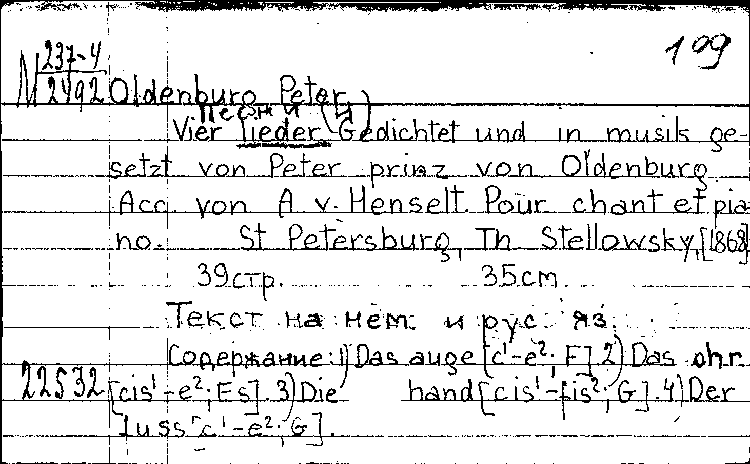 199
М 237-4
2492 Oldenburg Peter
Песни (4)
Vier lieder. Gedichtet und in musik ge-
setzt von Peter prinz von Oldenburg.
Acc. von A v. Henselt. Pour chant et pia-
no. St Petersburg, Th Stellowsky, [1868]
39стр. 35см.
Текст на нем. и рус. яз.
Содержание: 1) Das auge [c¹-e²; F]. 2) Das ohr
22532 [cis¹-e²; Es]. 3) Die hand [cis¹-fis²; G]. 4) Der
fuss [c¹-e²; G].